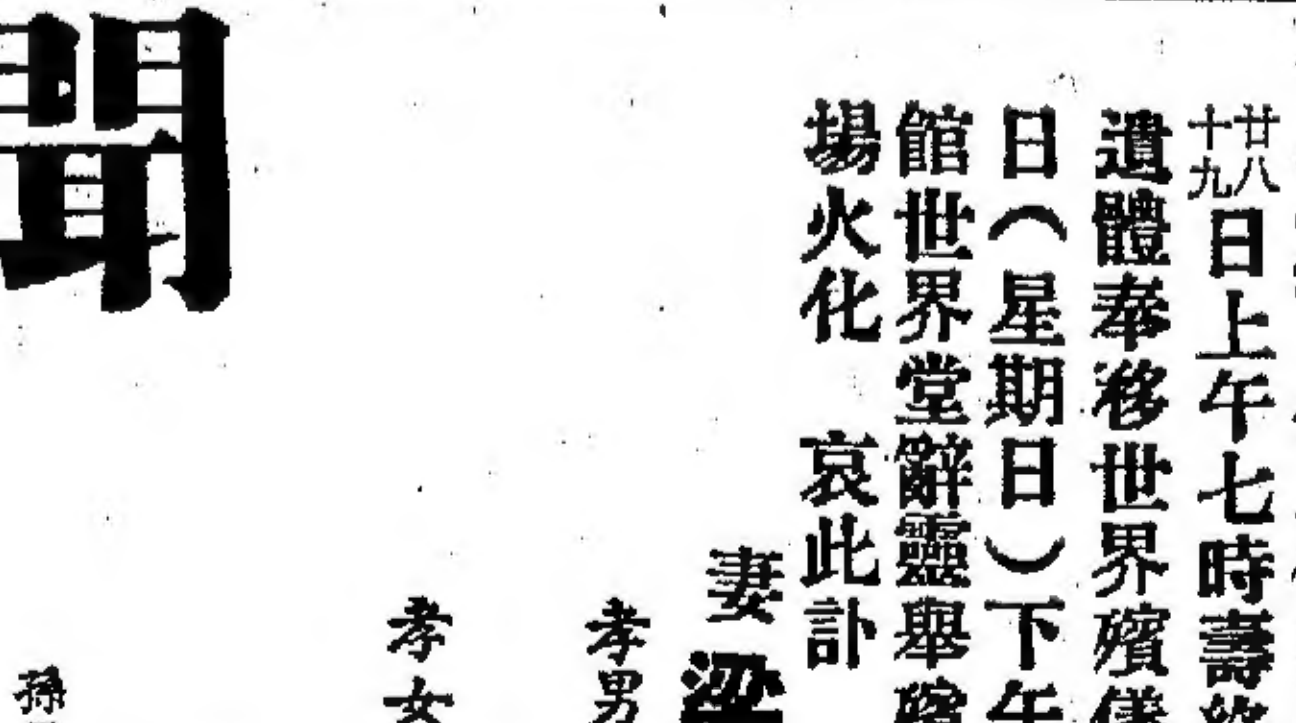 廿八
十九
日上午七時壽終
遺體奉移世界殯儀
日（星期日）下午
館世界堂辭靈舉殯
場火化　哀此訃
聞
妻 梁
孝男
孝女
孫